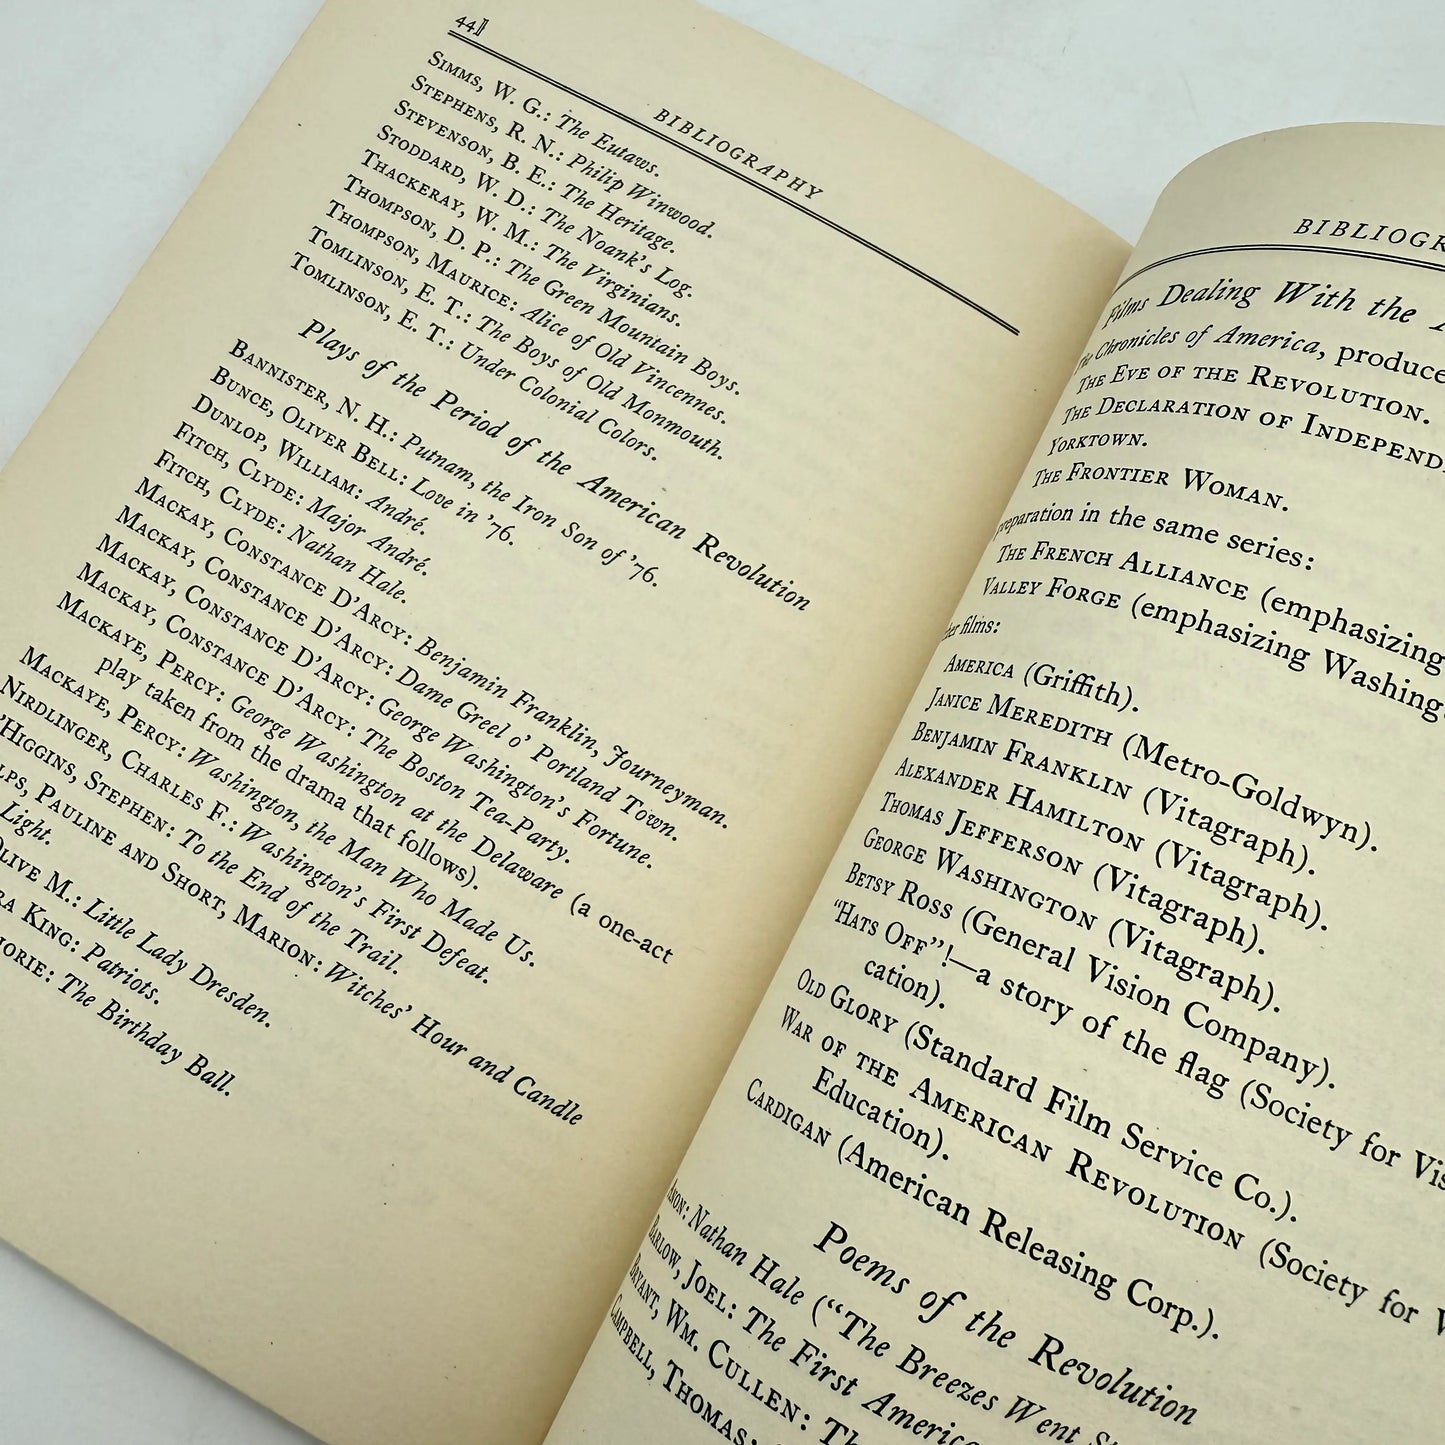 44]
BIBLIOGRAPHY
SIMMS, W. G.: The Eutaws.
STEPHENS, R. N.: Philip Winwood.
STEVENSON, B. E.: The Heritage.
STODDARD, W. D.: The Noank's Log.
THACKERAY, W. M.: The Virginians.
THOMPSON, D. P.: The Green Mountain Boys.
THOMPSON, MAURICE: Alice of Old Vincennes.
TOMLINSON, E. T.: The Boys of Old Monmouth.
TOMLINSON, E. T.: Under Colonial Colors.
Plays of the Period of the American Revolution
BANNISTER, N. H.: Putnam, the Iron Son of '76.
BUNCE, OLIVER BELL: Love in '76.
DUNLOP, WILLIAM: André.
FITCH, CLYDE: Major André.
FITCH, CLYDE: Nathan Hale.
MACKAY, CONSTANCE D'ARCY: Benjamin Franklin, Journeyman.
MACKAY, CONSTANCE D'ARCY: Dame Greel o' Portland Town.
MACKAY, CONSTANCE D'ARCY: George Washington's Fortune.
MACKAY, CONSTANCE D'ARCY: The Boston Tea-Party.
MACKAYE, PERCY: George Washington at the Delaware (a one-act
play taken from the drama that follows).
MACKAYE, PERCY: Washington, the Man Who Made Us.
NIRDLINGER, CHARLES F.: Washington's First Defeat.
'HIGGINS, STEPHEN: To the End of the Trail.
LPS, PAULINE AND SHORT, MARION: Witches' Hour and Candle
Light.
OLIVE M.: Little Lady Dresden.
RA KING: Patriots.
JORIE: The Birthday Ball.
BIBLIOGR
Films Dealing With the
Chronicles of America, produce
THE EVE OF THE REVOLUTION.
THE DECLARATION OF INDEPEND
YORKTOWN.
THE FRONTIER WOMAN.
preparation in the same series:
THE FRENCH ALLIANCE (emphasizing
VALLEY FORGE (emphasizing Washing
her films:
AMERICA (Griffith).
JANICE MEREDITH (Metro-Goldwyn).
BENJAMIN FRANKLIN (Vitagraph).
ALEXANDER HAMILTON (Vitagraph).
THOMAS JEFFERSON (Vitagraph).
GEORGE WASHINGTON (Vitagraph).
BETSY ROSS (General Vision Company).
"HATS OFF"!—a story of the flag (Society for Vis
cation).
OLD GLORY (Standard Film Service Co.).
WAR OF THE AMERICAN REVOLUTION (Society for V
Education).
CARDIGAN (American Releasing Corp.).
Poems of the Revolution
ANON: Nathan Hale ("The Breezes Went St
BARLOW, JOEL: The First America
BRYANT, WM. CULLEN: Th
CAMPBELL, THOMAS: